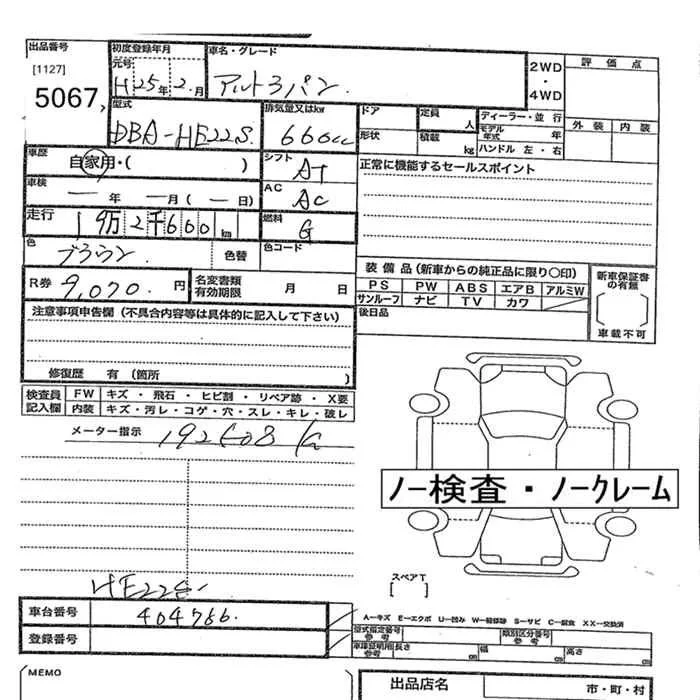 出品番号 初度登録年月 車名・グレード
[1127] 元号 H25年2.月 アルトラパン. 2WD・4WD 評価点
5067
型式 排気量又はkw ドア 定員 人 ディーラー・並行 外装 内装
DBA-HE22S. 660cc 形状 積載 kg モデル年式 年
ハンドル 左・右
車歴 自家用・( ) シフト AT 正常に機能するセールスポイント
車検 ー年 ー月(ー日) AC AC
走行 19万2千600km 燃料 G
色 ブラウン 色替 色コード
装備品(新車からの純正品に限り○印) 新車保証書の有無
R券 9,070.円 名変書類有効期限 月 日 PS PW ABS エアB アルミW
サンルーフ ナビ TV カワ
( )
注意事項申告欄(不具合内容等は具体的に記入して下さい) 後日品 車載不可
修復歴 有(箇所 )
検査員記入欄 FW キズ・飛石・ヒビ割・リペア跡・X要
内装 キズ・汚レ・コゲ・穴・スレ・キレ・破レ
メーター指示 192608 k
ノー検査・ノークレーム
スペアT
[ ]
HE22S
車台番号 404766.
A－キズ E－エクボ U－凹み W－補修跡 S－サビ C－腐食 XX－交換済
登録番号 型式指定番号 参考 類別区分番号 参考
車庫証明用 参考 長さ cm 幅 cm 高さ cm
MEMO 出品店名 市・町・村